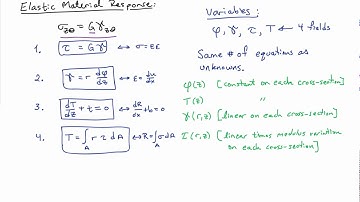 Elastic Material Response:
σzθ = Gγzθ
1. τ = Gγ ↔ σ = Eε
2. γ = r dφ/dz ↔ ε = du/dx
3. dT/dz + t = 0 ↔ dR/dx + b = 0
4. T = ∫A r τ dA ↔ R = ∫A σ dA
Variables:
φ, γ, τ, T ← 4 fields
Same # of equations as
unknowns.
φ(z) [constant on each cross-section]
T(z) "
γ(r,z) [linear on each cross-section]
τ(r,z) [linear times modulus variation
on each cross-section]